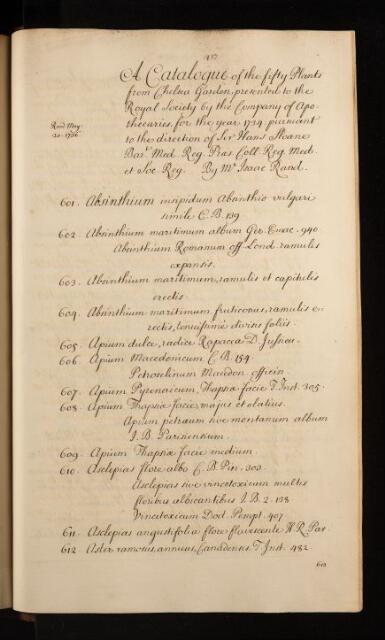 A Catalogue of the fifty Plants
from Chelsea Garden, presented to the
Royal Society by the Company of Apo-
thecaries for the year 1734. pursuant
Read May
20. 1736
to the direction of Sir Hans Sloane
Bar.t Med. Reg. Præs. Coll. Reg. Med.
et Soc Reg. By Mr. Isaac Rand.
601. Absinthium insipidum Absinthio vulgari
simile C. B. 139
602. Absinthium maritimum album Ger. Emac. 940
Absinthium Romanum off. Lond. ramulis
expansis.
603. Absinthium maritimum, ramulis et capitulis
erectis.
604. Absinthium maritimum fruticosus, ramulis e-
rectis, tenuissime divisis foliis.
605. Apium dulce, radice Rapacea D. Jussieu.
606. Apium Macedonicum C. B. 154.
Petroselinum Macedon. officin.
607. Apium Pyrenaicum, Thapsiæ facie T. Inst. 305.
608. Apium Thapsiæ facie, majus et elatius.
Apium petræum sive montanum album
J. B. Parisiensium.
609. Apium Thapsiæ facie medium.
610. Asclepias flore albo C. B. Pin. 303.
Asclepias sive vincetoxicum multis
floribus albicantibus J. B. 2. 138
Vincetoxicum Dod. Pempt. 407
611. Asclepias angustifolia flore flavescente H. R. Par.
612. Aster ramosus, annuus, Canadensis T. Inst. 482.
613